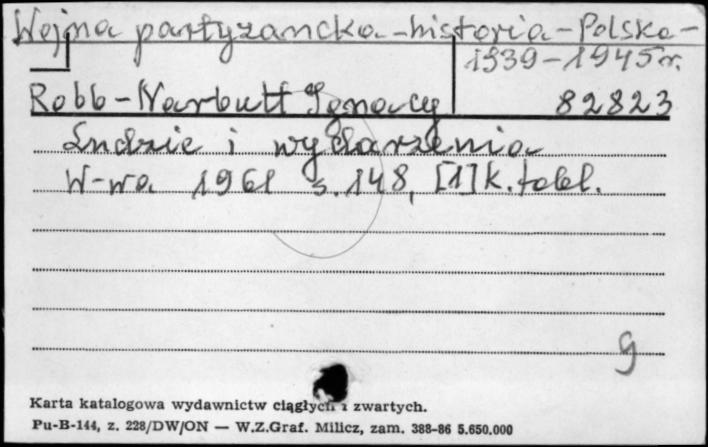 Wojna partyzancka-historia-Polska-
1939-1945 r.
Robb-Narbutt Ignacy 82823
Ludzie i wydarzenia
W-wa 1961 s. 148, [1] k. tabl.
g
Karta katalogowa wydawnictw ciągłych i zwartych.
Pu-B-144, z. 228/DW/ON — W.Z.Graf. Milicz, zam. 388-86 5.650.000